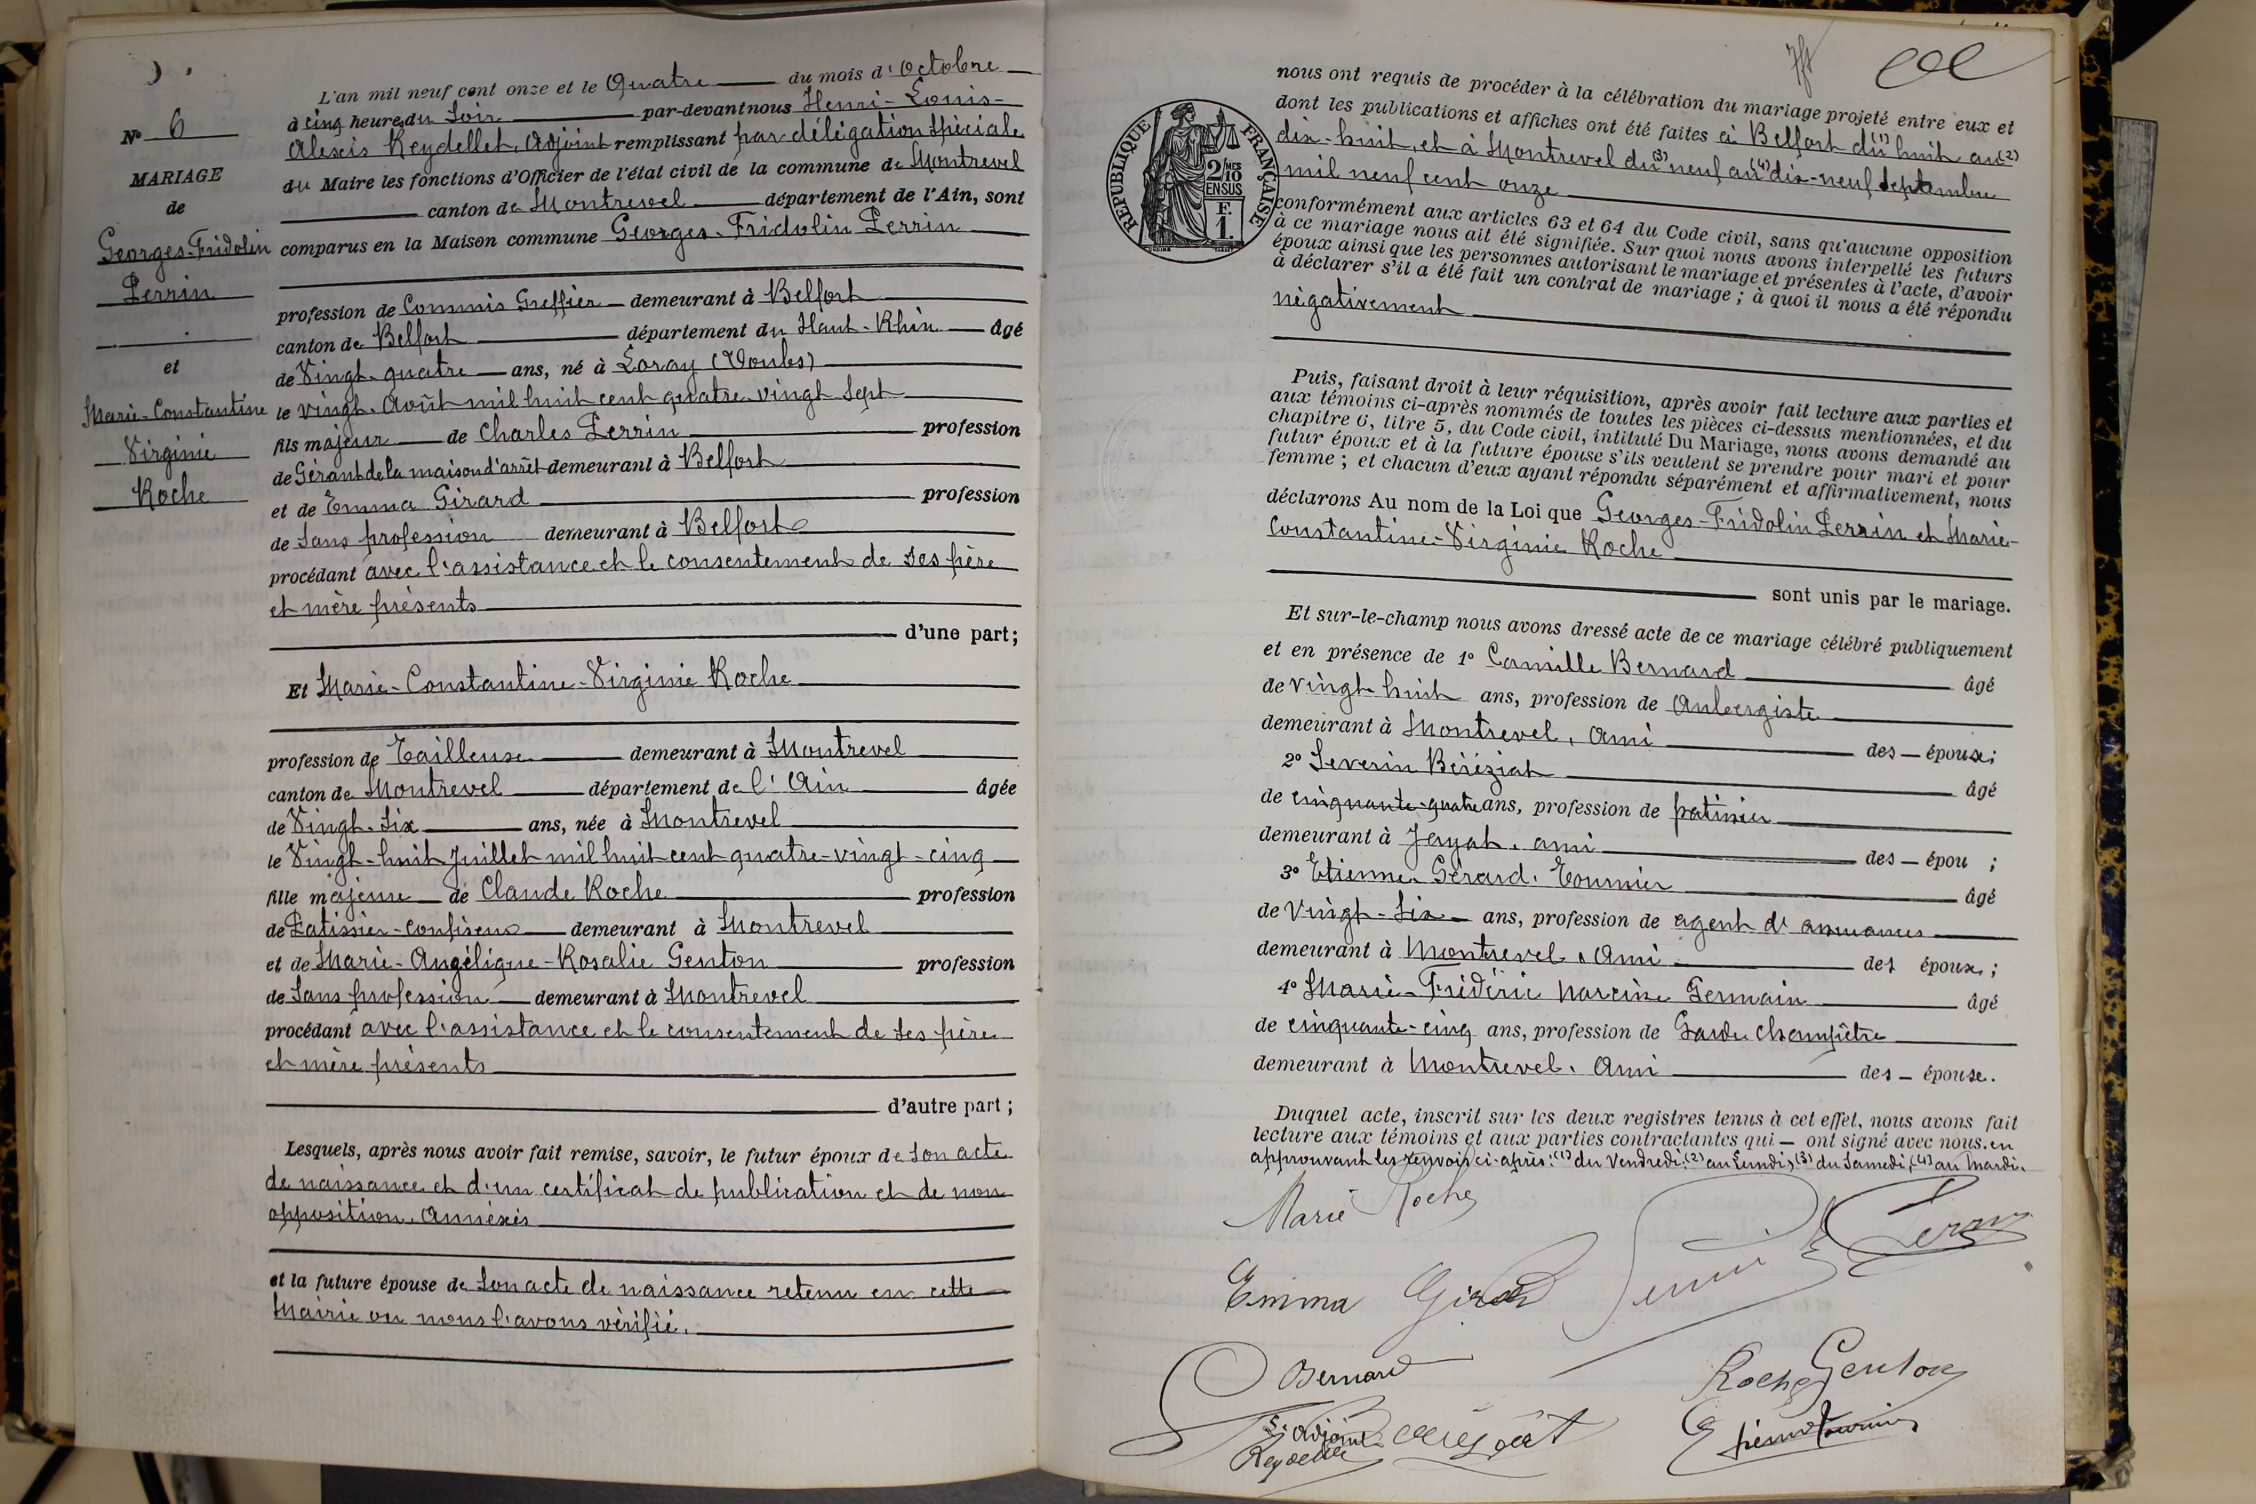 L'an mil neuf cent onze et le Quatre du mois d'Octobre
à cinq heures du Soir par-devant nous Henri-Louis-
Nº 6
Alexis Reydellet, Adjoint remplissant par délégation spéciale
MARIAGE
du Maire les fonctions d'Officier de l'état civil de la commune de Montrevel
de
canton de Montrevel département de l'Ain, sont
Georges-Fridolin
comparus en la Maison commune Georges-Fridolin Perrin
Perrin
profession de Commis Greffier demeurant à Belfort
canton de Belfort département du Haut-Rhin âgé
et
de Vingt-quatre ans, né à Loray (Doubs)
Marie-Constantine
le vingt-Août mil huit cent quatre-vingt sept
fils majeur de Charles Perrin profession
Virginie
de Gérant de la maison d'arrêt demeurant à Belfort
Roche
et de Emma Girard profession
de Sans profession demeurant à Belfort
procédant avec l'assistance et le consentement de ses père
et mère présents
d'une part;
Et Marie-Constantine-Virginie Roche
profession de Tailleuse demeurant à Montrevel
canton de Montrevel département de l'Ain âgée
de Vingt-Six ans, née à Montrevel
le Vingt-huit Juillet mil huit cent quatre-vingt-cinq
fille majeure de Claude Roche profession
de Patissier-confiseur demeurant à Montrevel
et de Marie-Angélique-Rosalie Genton profession
de Sans profession demeurant à Montrevel
procédant avec l'assistance et le consentement de ses père
et mère présents
d'autre part;
Lesquels, après nous avoir fait remise, savoir, le futur époux de son acte
de naissance et d'un certificat de publication et de non
opposition, Annéxés
et la future épouse de son acte de naissance retenu en cette
Mairie ou nous l'avons vérifié.
nous ont requis de procéder à la célébration du mariage projeté entre eux et
dont les publications et affiches ont été faites à Belfort du (1) huit au (2)
dix-huit, et à Montrevel du (3) neuf au (4) dix-neuf Septembre
mil neuf cent onze
RÉPUBLIQUE FRANÇAISE
2/10 MES
EN SUS
F.
1.
conformément aux articles 63 et 64 du Code civil, sans qu'aucune opposition
à ce mariage nous ait été signifiée. Sur quoi nous avons interpellé les futurs
époux ainsi que les personnes autorisant le mariage et présentes à l'acte, d'avoir
à déclarer s'il a été fait un contrat de mariage; à quoi il nous a été répondu
négativement
Puis, faisant droit à leur réquisition, après avoir fait lecture aux parties et
aux témoins ci-après nommés de toutes les pièces ci-dessus mentionnées, et du
chapitre 6, titre 5, du Code civil, intitulé Du Mariage, nous avons demandé au
futur époux et à la future épouse s'ils veulent se prendre pour mari et pour
femme; et chacun d'eux ayant répondu séparément et affirmativement, nous
déclarons Au nom de la Loi que Georges-Fridolin Perrin et Marie-
Constantine-Virginie Roche
sont unis par le mariage.
Et sur-le-champ nous avons dressé acte de ce mariage célébré publiquement
et en présence de 1º Camille Bernard âgé
de vingt-huit ans, profession de Aubergiste
demeurant à Montrevel, Ami des époux;
2º Severin Béréziat âgé
de cinquante-quatre ans, profession de patissier
demeurant à Jayat, ami des épou ;
3º Etienne Gérard Tournier âgé
de Vingt-Six ans, profession de agent d'assurances
demeurant à Montrevel, Ami des époux;
4º Marie-Frédéric Narcisse Germain âgé
de cinquante-cinq ans, profession de Garde Champêtre
demeurant à Montrevel, Ami des époux.
Duquel acte, inscrit sur les deux registres tenus à cet effet, nous avons fait
lecture aux témoins et aux parties contractantes qui ont signé avec nous. en
approuvant les renvois ci-après: (1) du Vendredi; (2) au Lundi; (3) du Samedi; (4) au Mardi.
Marie Roche
Perrin
Emma Girard
Bernard
Roche Genton
L'adjoint
Béréziat
Reydellet
Tournier